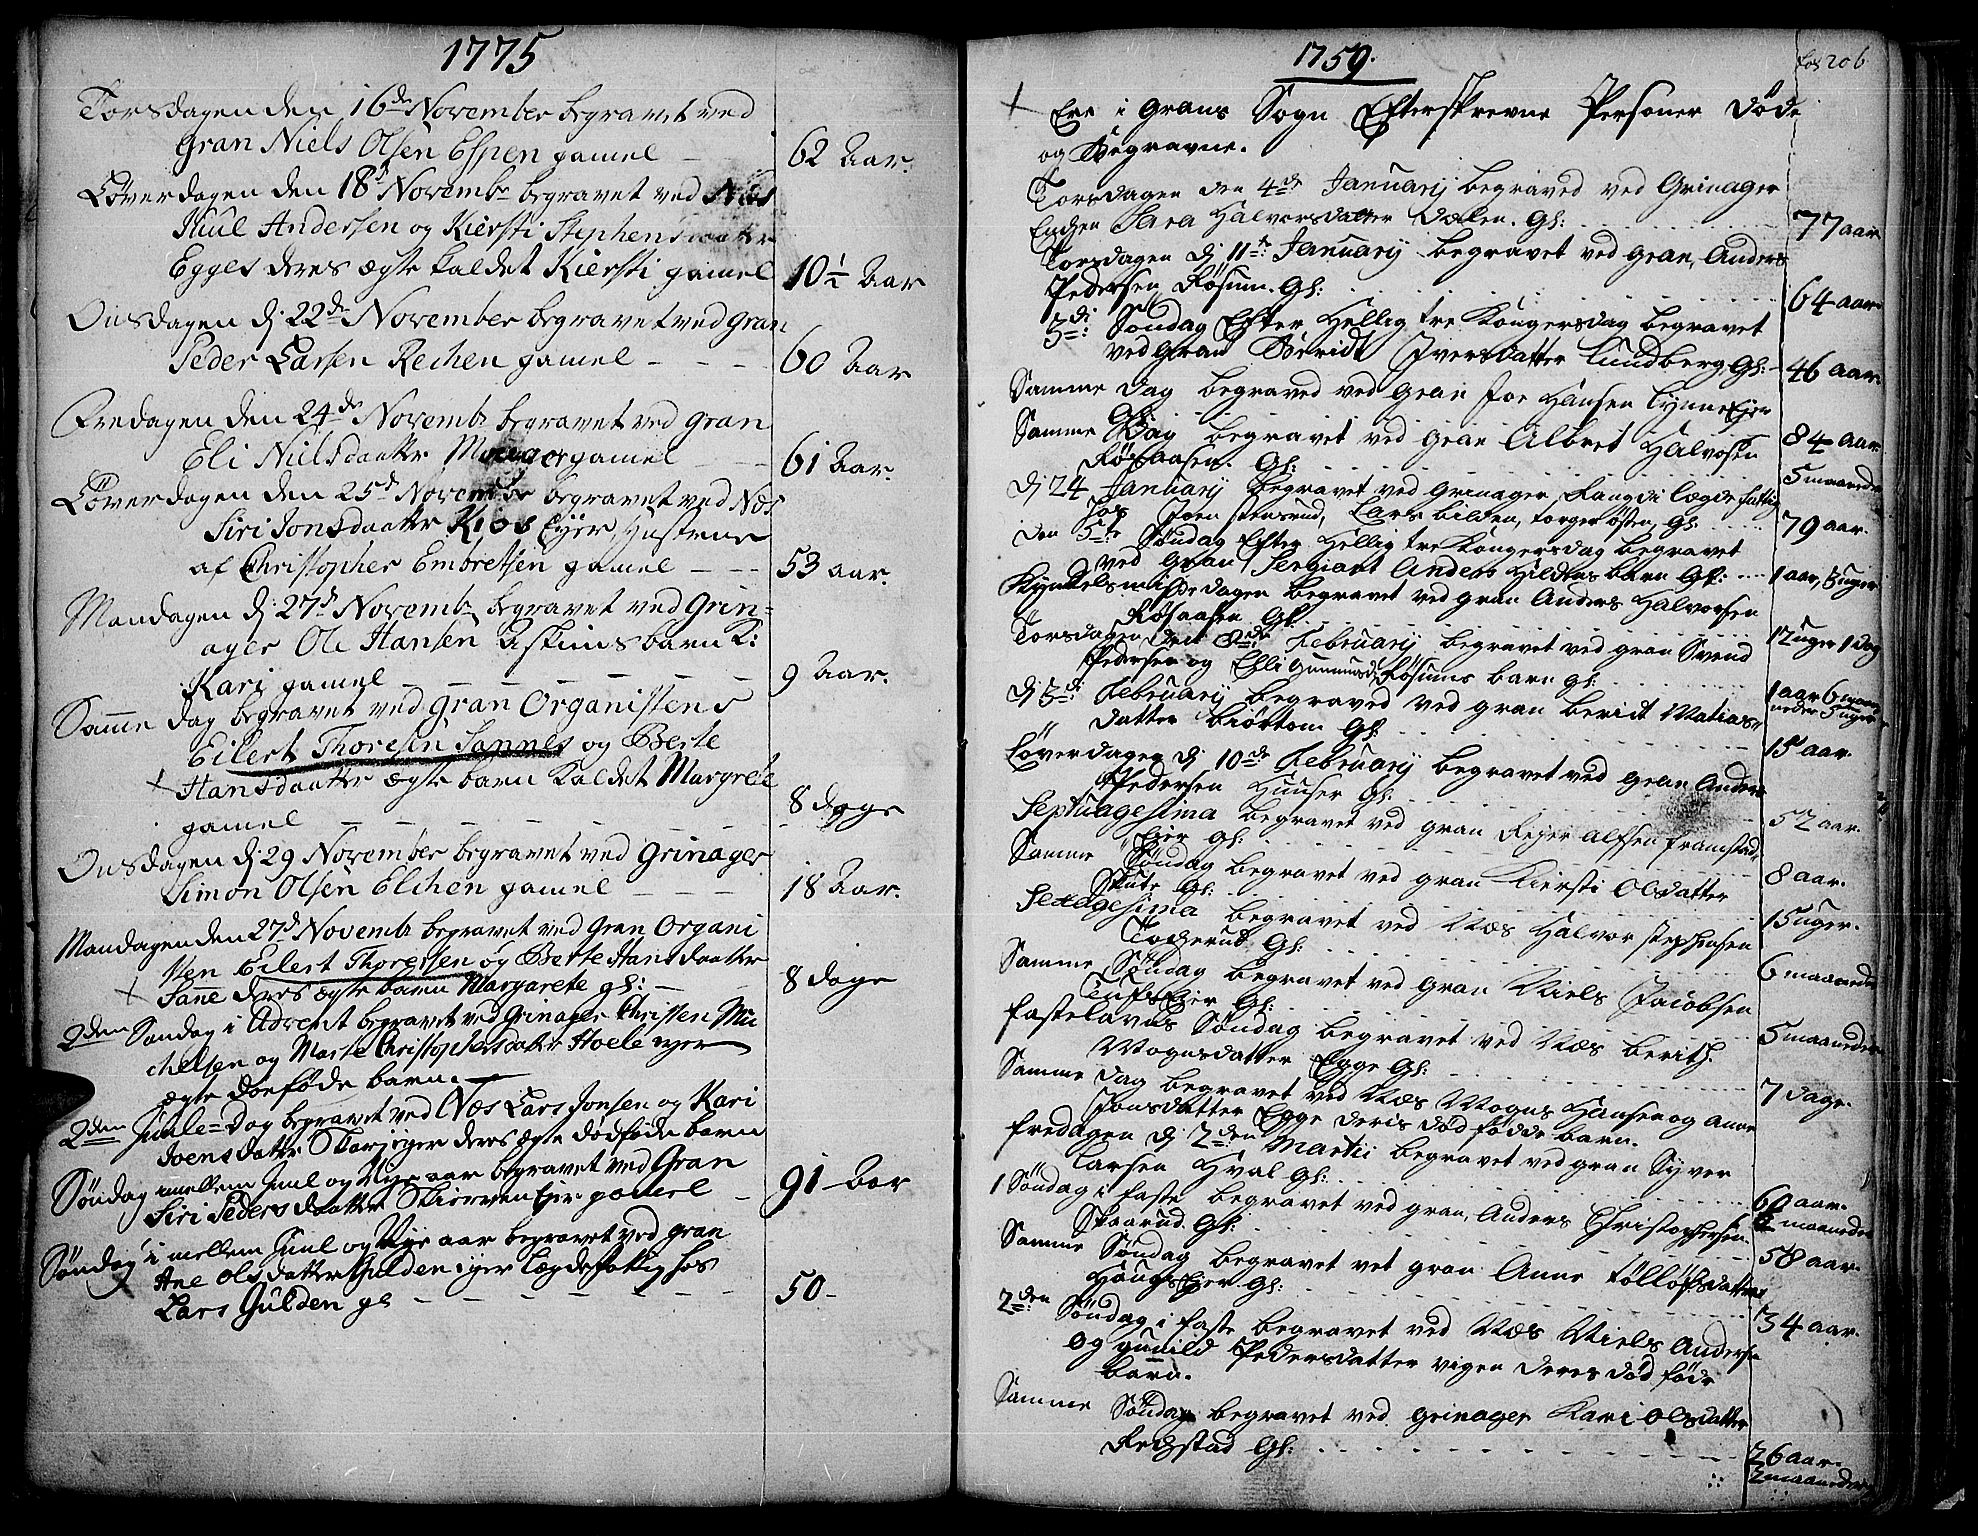 1775
Torsdagen den 16de November begravet ved
Gran Niels Olsen Espen gamel — 62 Aar.
Løverdagen den 18d Novembr begravet ved Næs
Juul Andersen og Kiersti Stephensdaatter
Egges deres ægte kaldet Kiersti gamel 10½ Aar
Onsdagen dj 22de November begravet ved Gran
Peder Larsen Rechen gamel — — — 60 Aar
Fredagen den 24de Novembr begravet ved Gran
Eli Nielsdaatter gamel — — 61 Aar.
Løverdagen den 25d November begravet ved Næs
Siri Jonsdaatter Kios Eyer Hustrue
af Christopher Embretsen gamel — — — 53 aar.
Mandagen dj 27d Novembr begravet ved Grin=
ager Ole Hansen Askims barn K:
Kari gamel — — — — — — 9 Aar.
Samme dag begravet ved Gran Organistens
Eilert Thoresen Sannes og Berte
+ Hansdaatter ægte barn kaldet Margrete
gamel — — — — — — — 8 dage
Onsdagen dj 29 November begravet ved Grinager
Simon Olsen Elchen gamel — — — 18 Aar.
Mandagen den 27d Novembr begravet ved Gran Organi
sten Eilert Thoresen og Berte Hansdaatter
+ Sane deres ægte barn Margarete gl: — — 8 dage
2den Søndag i Advent begravet ved Grinager Christen Mic
chelsen og Marte Christophersdatter Hoele eyer
ægte dødføde barn.
2den Juule=Dag begravet ved Næs Lars Jonsen og Kari
Joensdatter deres ægte dødføde barn
Søndag imellem Juul og Nye aar begravet ved Gran
Siri Pedersdaatter Eier gamel — 91 Aar
Søndag i mellem Juul og Nye aar begravet ved gran
Ane Olsdatter Gulden iger Lægdefattig hos
Lars Gulden gl — — — — — — 50 -
1759.
fol 206
+ Ere i Grans Sogn Efterskrevne Personer døde
og Begravne.
Torsdagen den 4de Januarij begraved ved Grinager
Enchen Sara Halvorsdatter Dælen. Gl: 77 aar
Torsdagen dj 11te Januarij begravet ved Gran, Anders
Pedersen Røsum. Gl: 64 aar.
3di Søndag Efter Hellig tre Kongersdag begravet
ved Gran Beridt Iversdatter Lundberg Gl: 46 aar.
Samme dag begraved ved Gran Joe Hansen Lynne Ejer
Gl: 84 aar.
Samme Dag begravet ved Gran Albret Halvorsen
Røsaasen. Gl: 5 maaneder
dj 24 Januarij begravet ved Grinager Rangdi lægde fattig
hos Joen Lars bilden, Torger østen, Gl 79 aar.
den 5te Søndag Efter Hellig tre Kongersdag begravet
ved Gran Sergiant Anders Hildens barn Gl: 1 aar, 8 uger
Kyndelsmisse dagen begravet ved Gran Anders Halvorsen
Røsaasen Gl. 12 uger 1 dag
Torsdagen den 8de Februarij begravet ved Gran Svend
Pedersen og Elli Gunnunsd. Røsums barn Gl. 1 aar 6 maa=
neder 3 uger
dj 3di Februarij begraved ved Gran Beridt Matias=
datter Gl: 15 aar.
Løverdagen dj 10de Februarij begravet ved Gran Anders
Pedersen Huuser Gl: 52 aar.
Septuagesima begravet ved Gran Peder Alfsen Framstad
Ejer Gl: 8 aar.
Samme Søndag begravet ved Gran Kiersti Olsdatter
Skute Gl: 15 uger.
Sexagesima begravet ved Næs Halvor Stephensen
Tocherud Gl: 6 maaneder
Samme Søndag begravet ved Gran Niels Jacobsen
Tufs Eier Gl: 5 maaneder
Fastelavns Søndag begravet ved Næs Berith
Mognsdatter Egge Gl: 7 dage.
Samme dag begravet ved Næs Mogns Hansen og Anne
Jonsdatter Egge deris død fødde barn.
Fredagen dj 2den Martii begravet ved Gran Syver
Larsen Hval Gl: 60 aar.
1 Søndag i Faste begravet ved Gran, Anders Christophersen
Skaarud. Gl: maaneder
Samme Søndag begravet vet Gran Anne Tolløfsdatter
Haugs Ejer Gl: 58 aar.
2den Søndag i Faste begravet ved Næs Niels Andersen 34 aar.
og Gunild Pedersdatter vigen deres død føde
barn.
Samme Søndag begravet ved Grinager Kari Olsdatter
Rechstad Gl: 26 aar.
2 maaneder